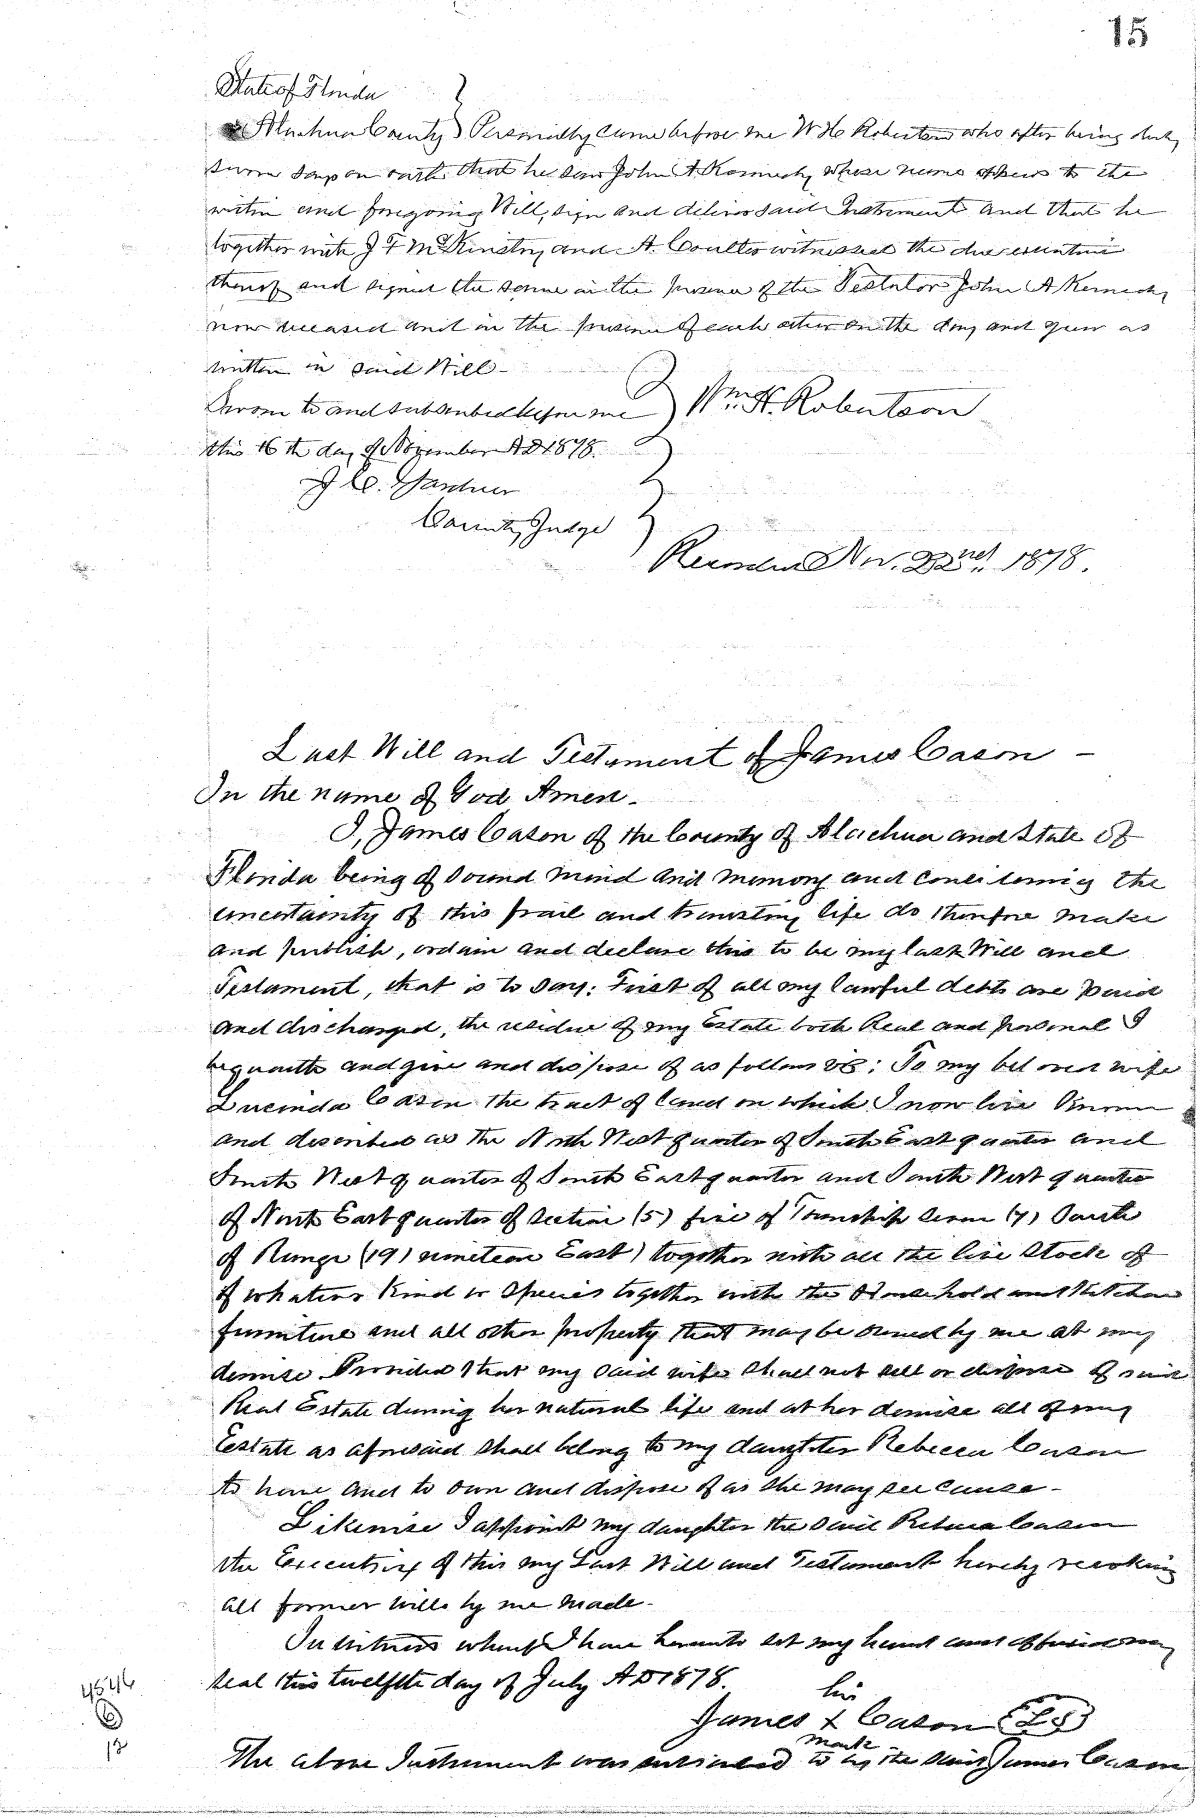 15
State of Florida
Alachua County } Personally came before me W H Robertson who after being duly
sworn says on oath that he saw John A Kennedy whose name appears to the
within and foregoing Will, sign and deliver said Instrument and that he
together with J F McKinstry and A. Coulter witnessed the due execution
thereof and signed the same in the presence of the Testator John A Kennedy
now deceased and in the presence of each other on the day and year as
written in said Will-
Sworn to and subscribed before me } Wm. H. Robertson
this 16th day of November AD 1878.
J. C. Gardner
County Judge
Recorded Nov. 22nd. 1878.
Last Will and Testament of James Cason -
In the name of God Amen.
I, James Cason of the County of Alachua and State of
Florida being of sound mind and memory and considering the
uncertainty of this frail and transitory life do therefore make
and publish, ordain and declare this to be my last Will and
Testament, that is to say: First of all my lawful debts are paid
and discharged, the residue of my Estate both Real and personal I
bequeath and give and dispose of as follows viz: To my beloved wife
Lucinda Cason the tract of land on which I now live Known
and described as the North West quarter of South East quarter and
South West quarter of South East quarter and South West quarter
of North East quarter of section (5) five of Township seven (7) South
of Range (19) nineteen East) together with all the live Stock of
of whatever Kind or Species together with the Household and Kitchen
furniture and all other property that may be owned by me at my
demise. Provided that my said wife shall not sell or dispose of said
Real Estate during her natural life and at her demise all of my
Eestate as aforesaid shall belong to my daughter Rebecca Cason
to have and to own and dispose of as she may see cause-
Likewise I appoint my daughter the said Rebecca Cason
the Executrix of this my Last Will and Testament hereby revoking
all former wills by me made-
In witness whereof I have hereunto set my hand and affixed my
seal this twelfth day of July AD 1878.
his
James x Cason {LS}
mark
4546
6
12
The above Instrument was subscribed to by the said James Cason